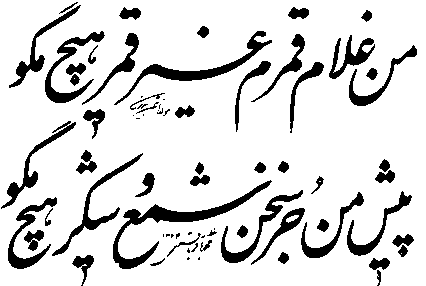 من غلام قمرم غیر قمر هیچ مگو
پیش من جز سخن شمع و شکر هیچ مگو